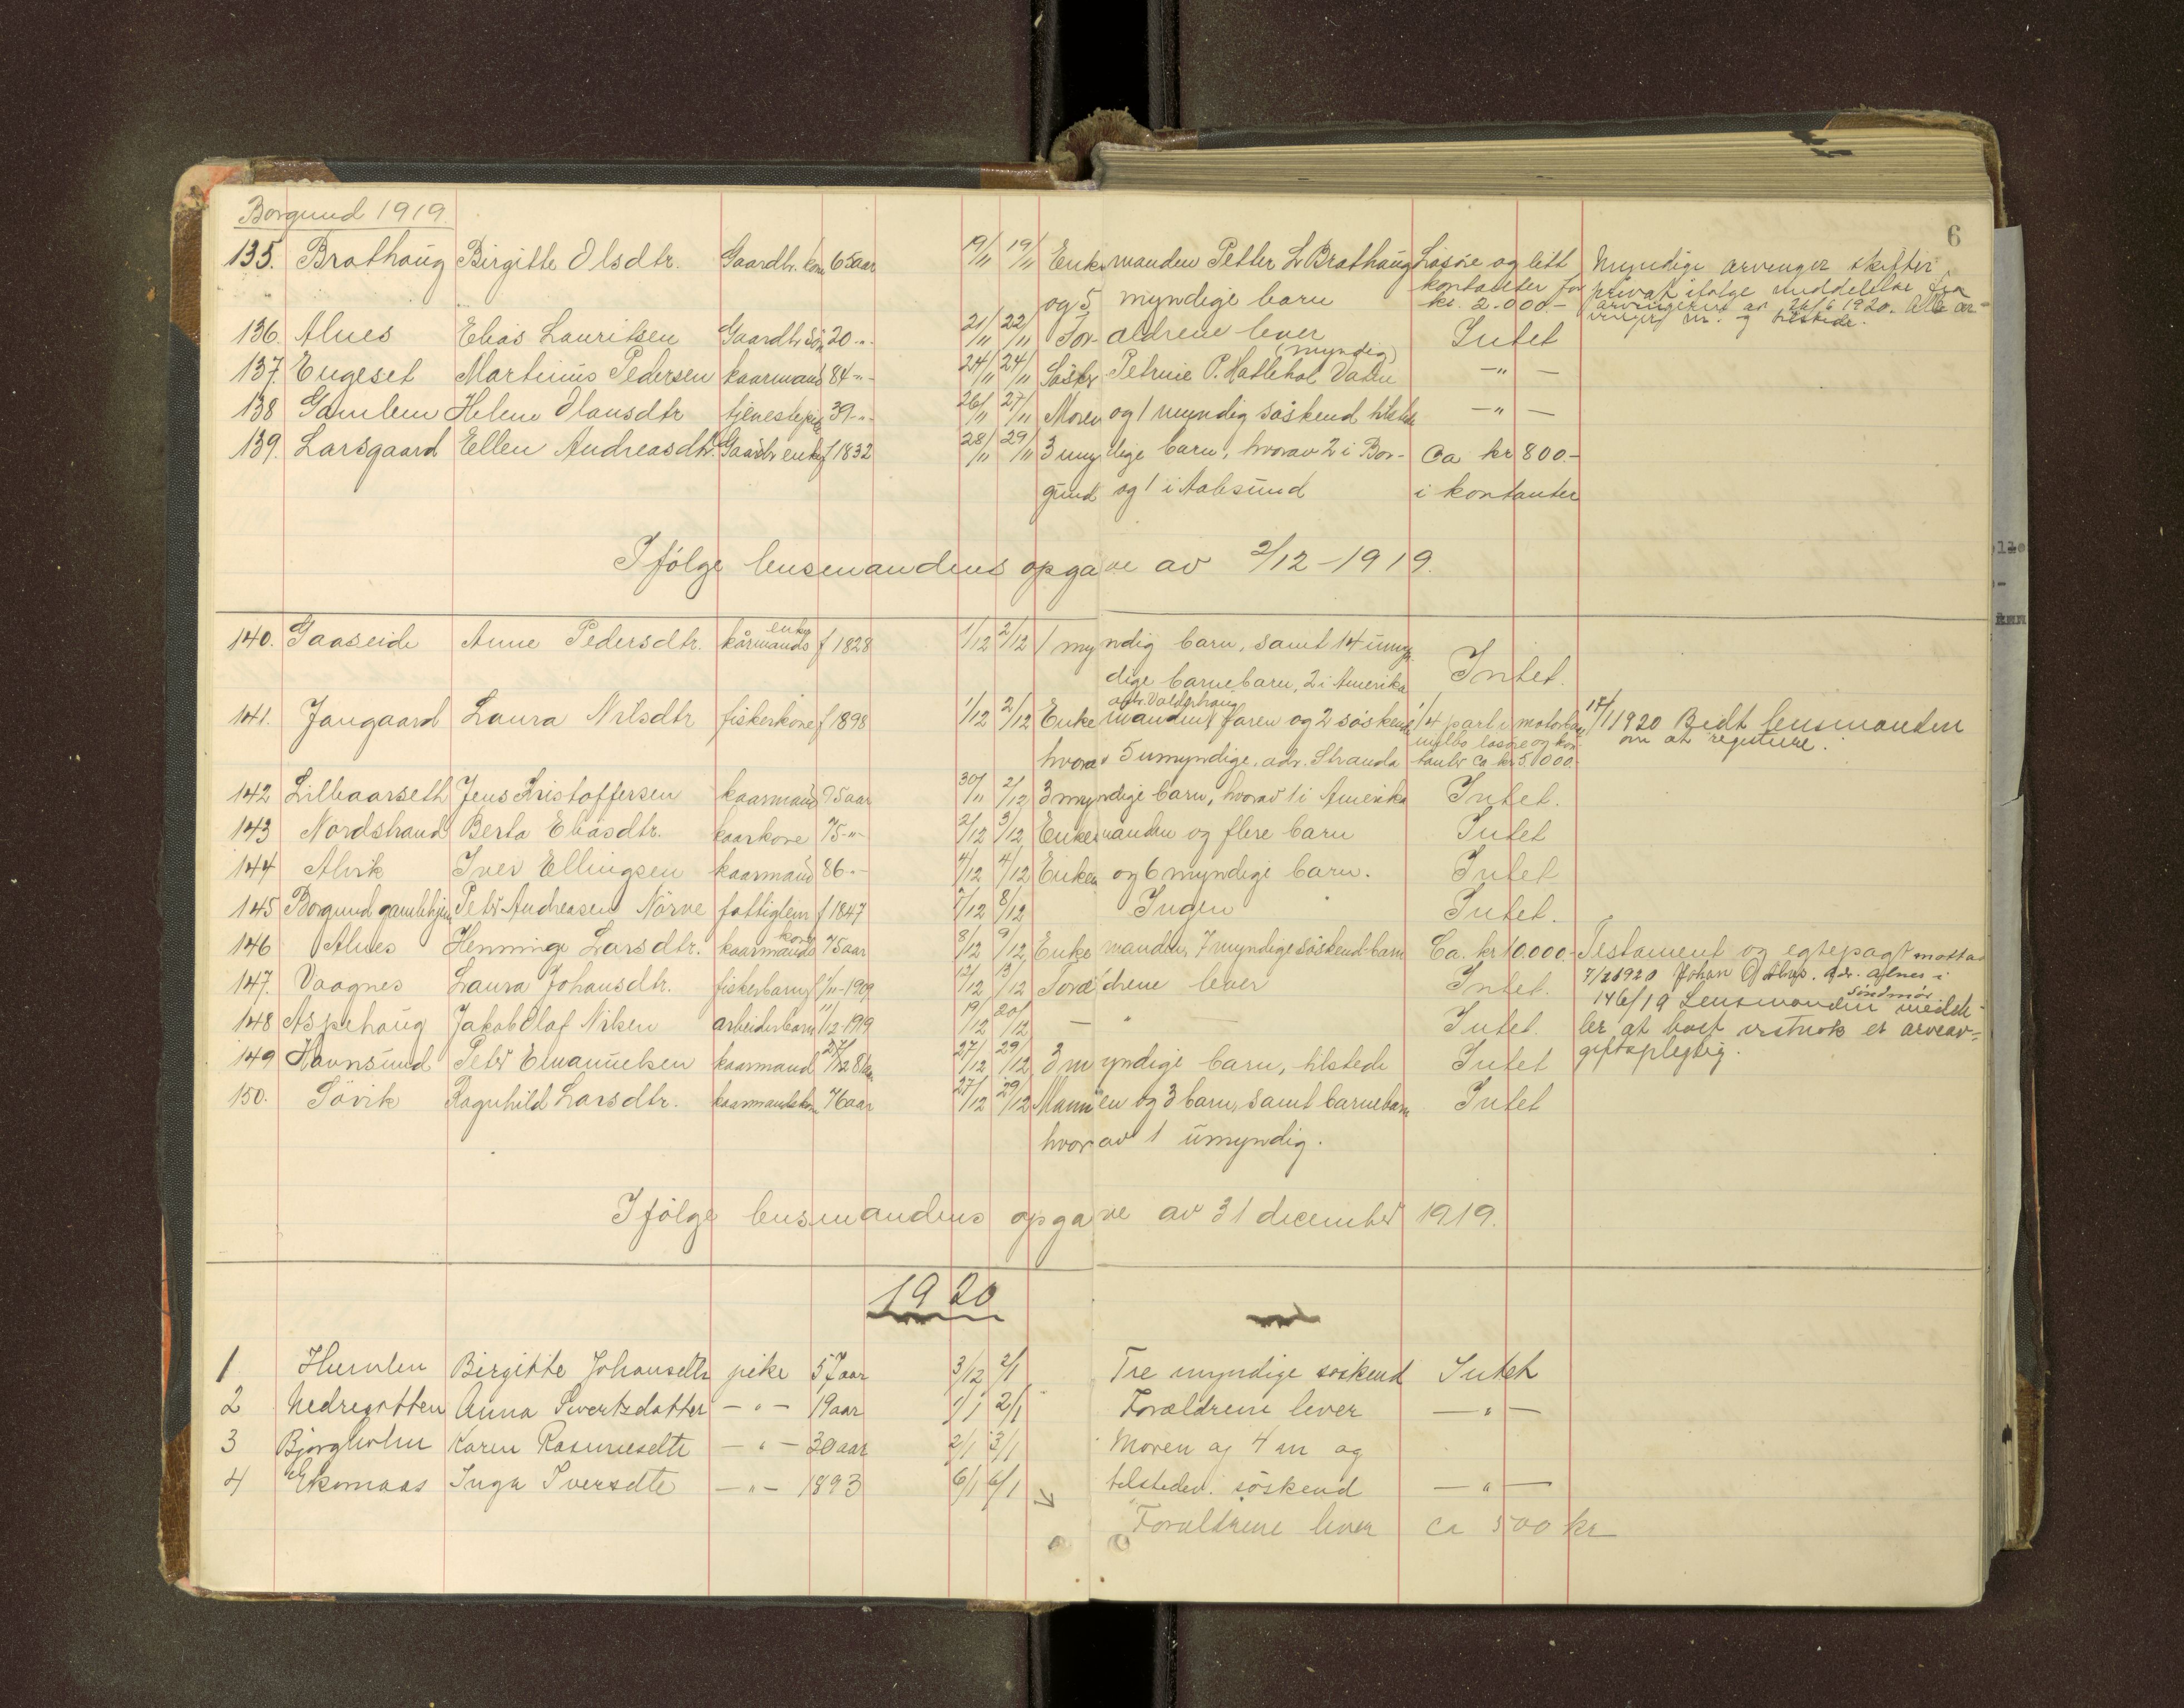 Borgund 1919.
6
135. Brathaug Birgitte Olsdtr. Gaardbr. kone 65 aar 19/11 19/11 Enkemanden Petter L. Brathaug Løsøre og litt Myndige arvinger skifter
og 5 myndige barn kontanter for privat ifølge meddelelse fra
kr. 2.000.- arvingerne av 26/6 1920. Alle ar-
vinger m. og tilstede.
136. Alnes Elias Lauritsen Gaardbr søn 20 -"- 21/11 22/11 Forældrene lever Intet
137. Engeset Martinus Pedersen kaarmand 84 -"- 24/11 24/11 Søster Petrine P. Hatlehol Vatne (myndig) -"-
138 Gamlem Helene Olausdtr tjenestepike 39 -"- 26/11 27/11 Moren og 1 myndig søskend tilstede -"-
139. Larsgaard Ellen Andreasdtr. Gaardbr enke f 1832 28/11 29/11 3 myndige barn, hvorav 2 i Bor- Ca kr 800.-
gund og 1 i Aalesund i kontanter
Ifølge lensmandens opgave av 2/12 - 1919.
140. Gaaseide Anne Pedersdtr. kårmands enke f 1828 1/12 2/12 1 myndig barn, samt 14 umyn-
dige barnebarn, 2 i Amerika Intet.
141. Jangaard Laura Nilsdtr fiskerkone f 1898 1/12 2/12 Enkemanden adr. Valderhaug faren og 2 søskende 1/4 part i motorbaat 17/1 1920 Bedt lensmanden
hvorav 5 umyndige, adr. Stranda løsøre og kon- om at registrere.
tanter ca kr 5.000.-
142 Lillaarseth Jens Kristoffersen kaarmand 75 aar 30/11 2/12 3 myndige barn, hvorav 1 i Amerika Intet.
143 Nordstrand Berta Eliasdtr. kaarkone 75 -"- 2/12 3/12 Enkemanden og flere barn Intet
144 Alvik Iver Ellingsen kaarmand 86 -"- 4/12 4/12 Enken og 6 myndige barn. Intet
145 Borgund gamlehjem Peter Andreasen Nörve fattiglem f 1847 7/12 8/12 Ingen Intet.
146 Alnes Henninge Larsdtr. kaarmands kone 75 aar 8/12 9/12 Enkemanden, 7 myndige søskend-barn Ca. kr 10.000.- Testament og egtepagt mottat
147. Vaagnes Laura Johansdtr. fiskerbarn f 1/11 - 1909 12/12 13/12 Forældrene lever Intet. 7/2 1920 Johan adr. Alnes i Søndmør
148 Aspehaug Jakob Olaf Nilsen arbeiderbarn 11/12 - 1919 19/12 20/12 -"- Intet. 146/19 Lensmanden meddeler at boet er arveav-
149 Havnsund Peter Emanuelsen kaarmand 27/12 81 aar 27/12 29/12 3 myndige barn, tilstede Intet giftspligtig.
150. Sövik Ragnhild Larsdtr. kaarmandskone 76 aar 27/12 29/12 Mannen og 3 barn, samt barnebarn Intet
hvorav 1 umyndig.
Ifølge lensmandens opgave av 31 december 1919.
1920
1 Humlen Birgitte Johansdtr pike 57 aar 3/12 2/1 Tre myndige søskend Intet
2 Nedregotten Anna Sivertsdatter -"- 19 aar 1/1 2/1 Forældrene lever -"-
3 Bjørgholm Karen Rasmusdtr -"- 30 aar 2/1 3/1 Moren og 4 m og
4 Ekornaas Inga Iversdtr -"- 1893 6/1 6/1 tilstedev. søskend -"-
Forældrene lever ca 500 kr